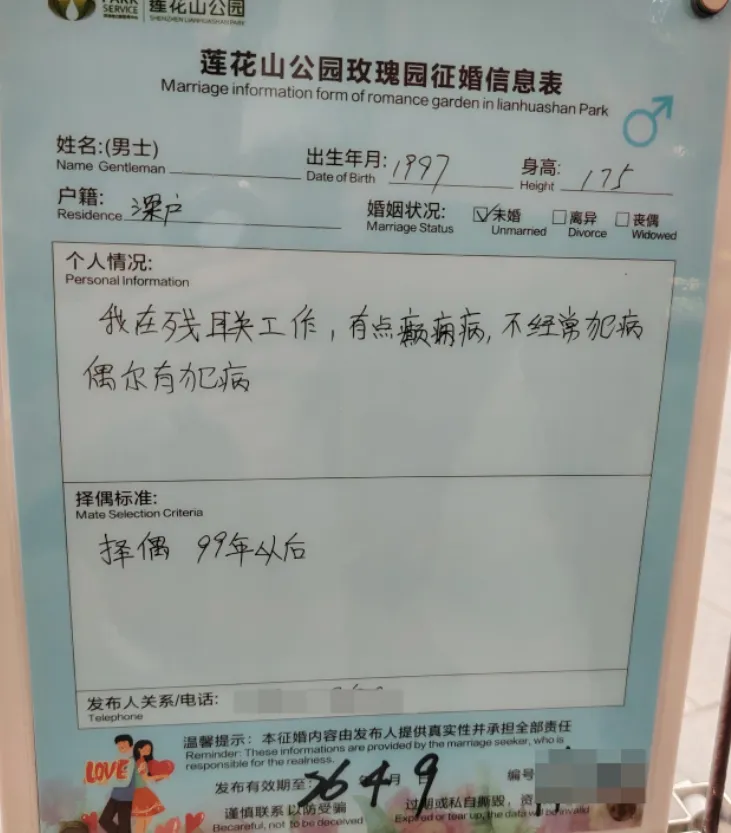 PARK
SERVICE
莲花山公园
SHENZHEN LIANHUASHAN PARK
莲花山公园玫瑰园征婚信息表
Marriage information form of romance garden in lianhuashan Park
姓名:(男士) 出生年月: 1997 身高: 175
Name Gentleman Date of Birth Height
户籍: 深户 婚姻状况: ☑未婚 □离异 □丧偶
Residence Marriage Status Unmarried Divorce Widowed
个人情况:
Personal Information
我在残联工作，有点癫痫病，不经常犯病
偶尔有犯病
择偶标准:
Mate Selection Criteria
择偶 99年以后
发布人关系/电话:
Telephone
温馨提示：本征婚内容由发布人提供真实性并承担全部责任
Reminder: These informations are provided by the marriage seeker, who is
responsible for the realness.
LOVE
发布有效期至: 26 4月 9 编号
谨慎联系 以防受骗 过期或私自撕毁，资
Becareful, not to be deceived Expired or tear up, the data will be invalid